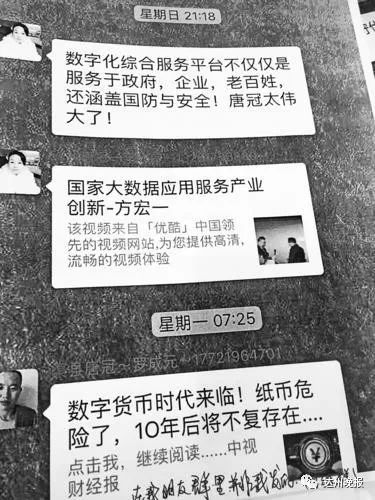 星期日 21:18
数字化综合服务平台不仅仅是
服务于政府，企业，老百姓，
还涵盖国防与安全！唐冠太伟
大了！
国家大数据应用服务产业
创新-方宏一
该视频来自「优酷」中国领
先的视频网站,为您提供高清,
流畅的视频体验
星期一 07:25
唐冠～罗成元～17721964701
数字货币时代来临！纸币危
险了，10年后将不复存在....
点击我，继续阅读......中视
财经报
在我朋友群里
达州晚报